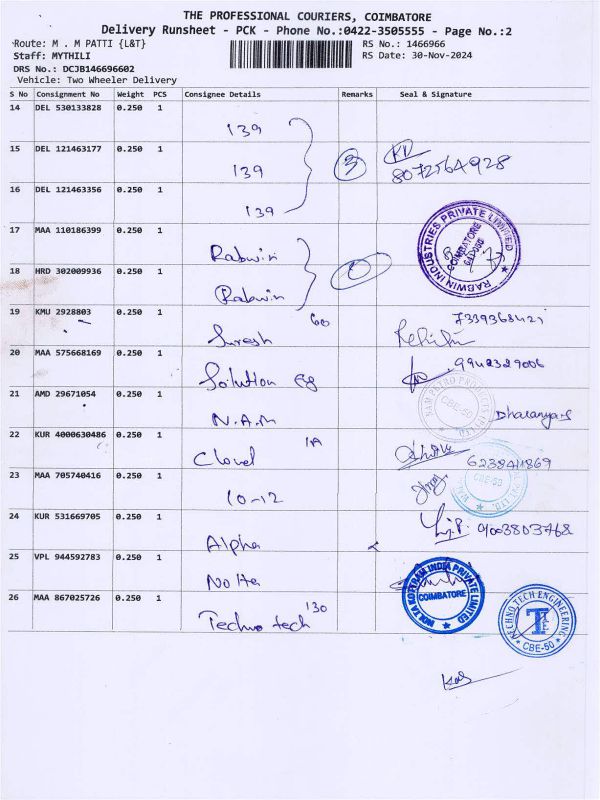 THE PROFESSIONAL COURIERS, COIMBATORE
Delivery Runsheet - PCK - Phone No.:0422-3505555 - Page No.:2
Route: M . M PATTI {L&T} RS No.: 1466966
Staff: MYTHILI RS Date: 30-Nov-2024
DRS No.: DCJB146696602
Vehicle: Two Wheeler Delivery
S No Consignment No Weight PCS Consignee Details Remarks Seal & Signature
14 DEL 530133828 0.250 1
139
15 DEL 121463177 0.250 1
139 3 8072564928
16 DEL 121463356 0.250 1
139
17 MAA 110186399 0.250 1
Rabwin
RABWIN INDUSTRIES PRIVATE LIMITED
COIMBATORE
18 HRD 302009936 0.250 1
Rabwin
19 KMU 2928803 0.250 1
Suresh 60
20 MAA 575668169 0.250 1
Solution 9942329006
21 AMD 29671054 0.250 1
N.A.M
CBE-50
22 KUR 4000630486 0.250 1
Cloud 1A
6238411869
23 MAA 705740416 0.250 1
10-12
CBE-50
24 KUR 531669705 0.250 1
Alpha 9003803768
25 VPL 944592783 0.250 1
Nolta
NOLTA KOTTRAM INDIA PRIVATE LIMITED
COIMBATORE
26 MAA 867025726 0.250 1
Techno tech 130
TECHNO TECH ENGINEERING
CBE-50